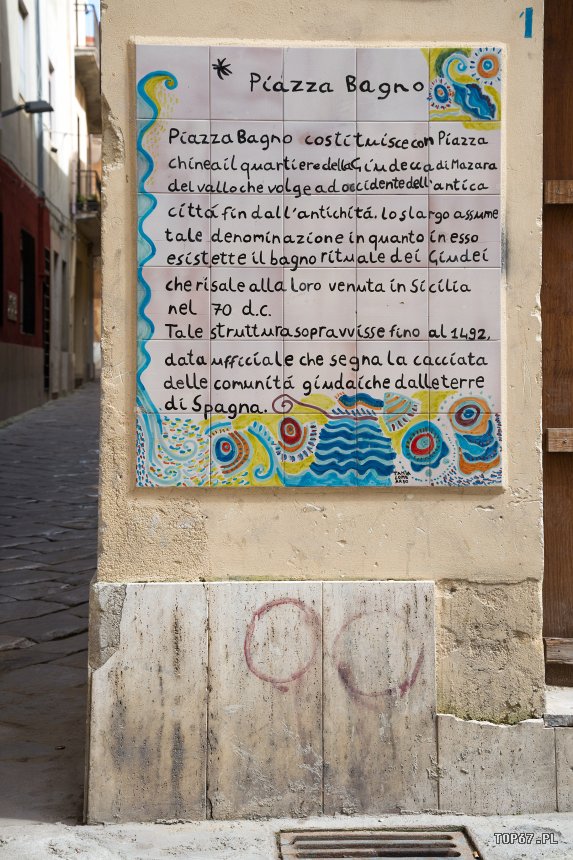 1
* Piazza Bagno
Piazza Bagno costituisce con Piazza
chinea il quartiere della Giudecca di Mazara
del vallo che volge ad occidente dell'antica
cittá fin dall'antichitá. lo slargo assume
tale denominazione in quanto in esso
esistette il bagno rituale dei Giudei
che risale alla loro venuta in Sicilia
nel 70 d.c.
Tale struttura sopravvisse fino al 1492,
data ufficiale che segna la cacciata
delle comunitá giudaiche dalle terre
di Spagna.
TOP67.PL